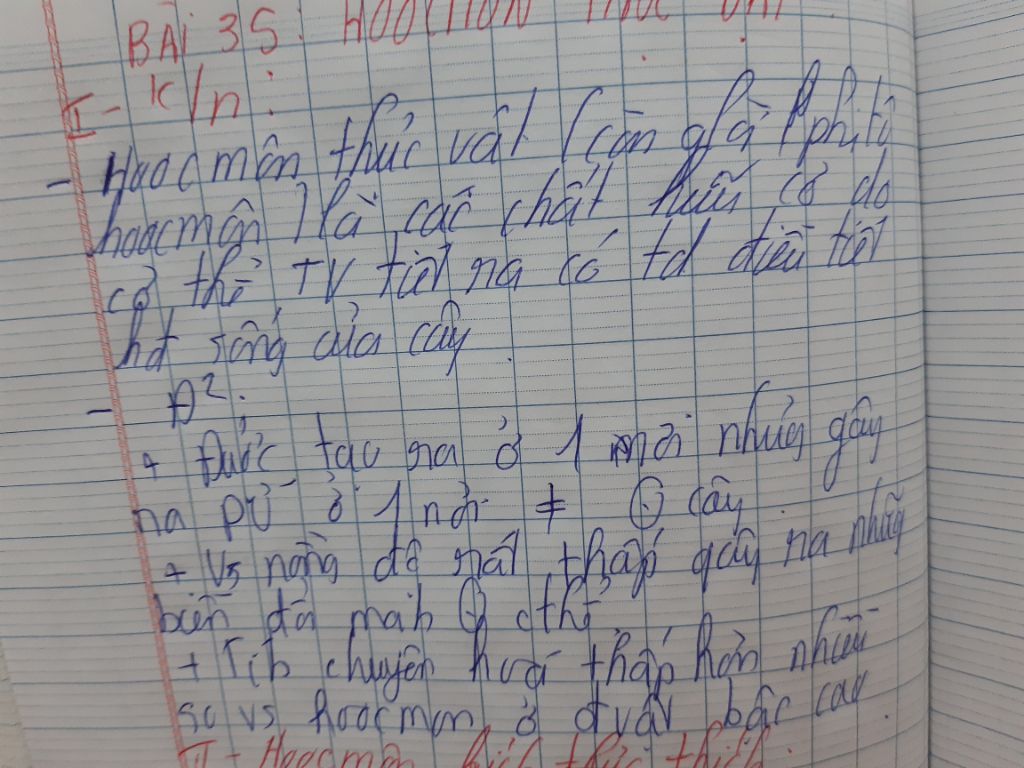 BÀI 35: HOOCMON THỰC VẬT
I - K/n:
- Hoocmôn thực vật (còn gọi là phitô
hoocmôn) là các chất hữu cơ do
cơ thể TV tiết ra có td điều tiết
hđ sống của cây.
- Đ²:
+ Được tạo ra ở 1 nơi nhưng gây
ra pứ ở 1 nơi ≠ cây
+ Vs nồng độ rất thấp gây ra những
biến đổi mạnh cthể
+ Tính chuyên hoá thấp hơn nhiều
so vs hoocmon ở đvật bậc cao.
II - Hoocmôn kích thích: